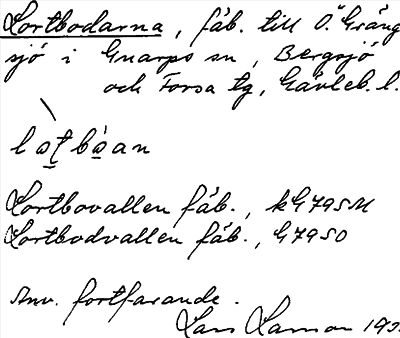 Lortbodarna, fäb. till Ö. Gräng
sjö i Gnarps sn, Bergsjö
och Forsa tg, Gävleb. l.
lo̠t̠bo̠an
Lortbovallen fäb., kG795M
Lortbodvallen fäb., G7950
Anv. fortfarande.
Lars Larson 19